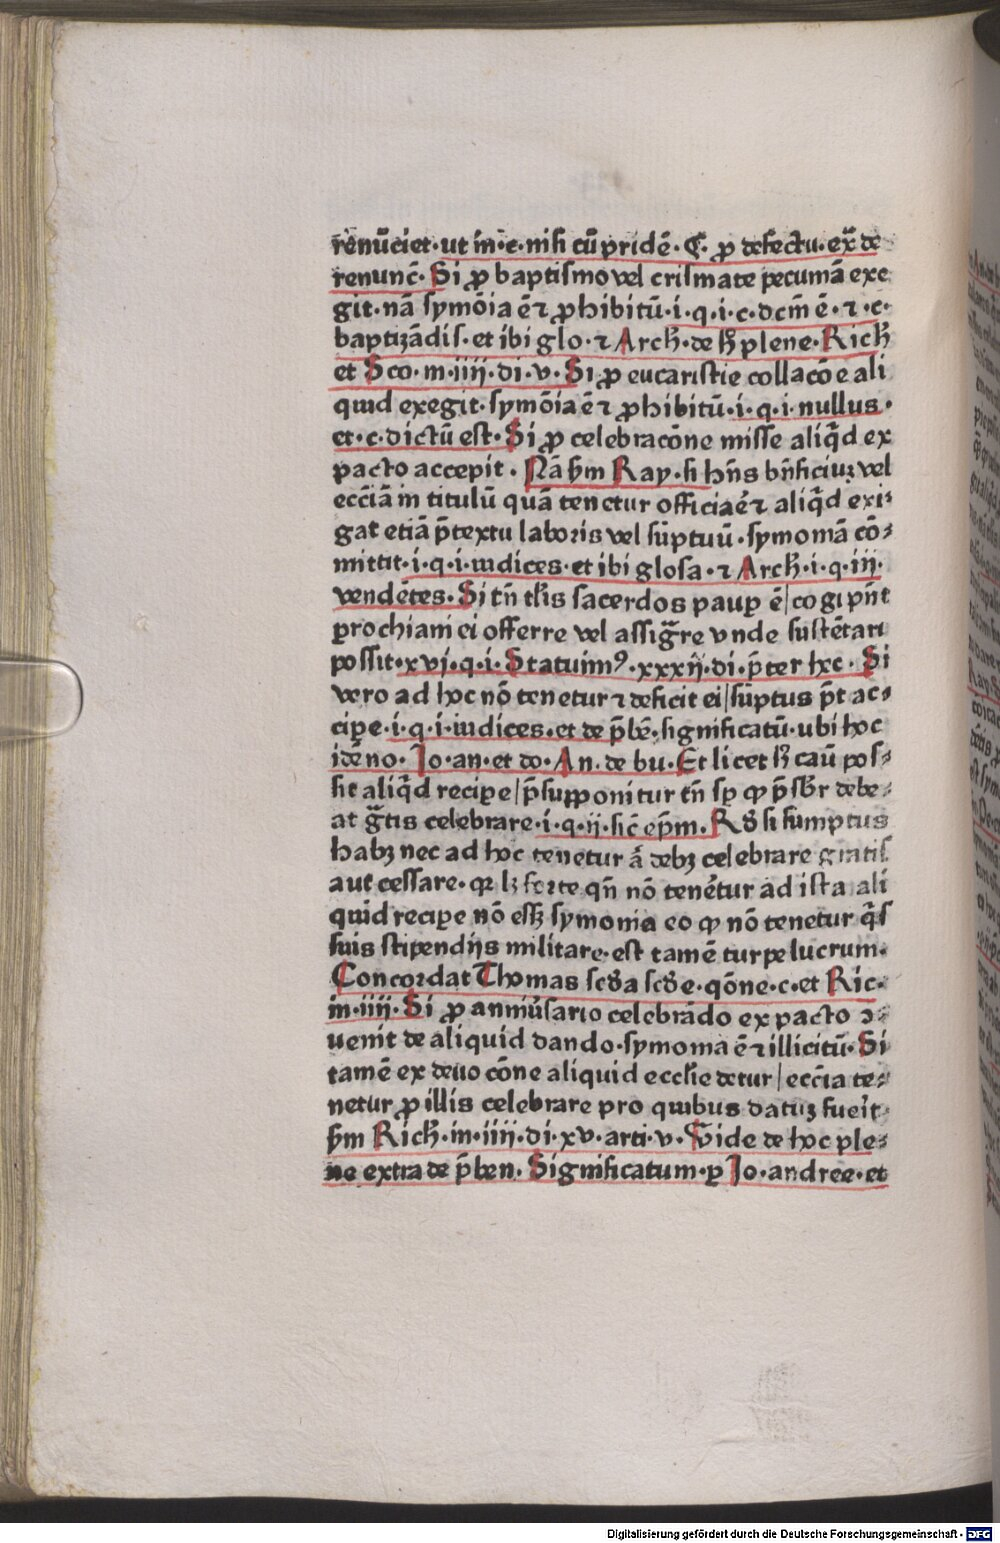 renūciet·ut in·c·nisi cū pridē·C·ꝓ defectu·ex̄ de
renunc̄·Si ꝓ baptismo vel crismate pecumā exe
git·nā symōia ē ⁊ ꝓhibitū·i·q·i·c·dcm̄ ē·⁊·c·
baptizādis·et ibi glo·⁊ Arch̄·de h̄ plene·Rich̄
et Sco·in·iiij·di·v·Si ꝓ eucaristie collacōe ali
quid exegit·symōia ē ⁊ ꝓhibitū·i·q·i·nullus·
et·c·dictū est·Si ꝓ celebracōne misse aliq̄d ex
pacto accepit·Nā s̄m Ray·si hn̄s bn̄ficiuꝫ vel
ecc̄iā in titulū quā tenetur officiare ⁊ aliq̄d exi⸗
gat etiā p̄textu laboris vel sūptuū·symoniā cō⸗
mittit·i·q·i·iudices·et ibi glosa·⁊ Arch̄·i·q·iij·
vendētes·Si tn̄ tl̄is sacerdos paup̄ ē/cogi pn̄t
ꝑrochiani ei offerre vel assig̅re vnde sustētari
possit·xvj·q·i·Statuimꝰ·xxxij·di·p̄ter hec·Si
vero ad hoc nō tenetur ⁊ deficit ei/sūptus p̄t ac⸗
cipe·i·q·i·iudices·et de p̄bē·significatū·ubi hoc
idē no·Jo·an·et do·An·de bu·Et licet h̄ cau̅ pos⸗
sit aliq̄d recipe/p̄supponitur tn̄ sꝑ ꝙ p̄sb̄r debe⸗
at g̅tis celebrare·i·q·ij·sic̄ ep̄m·Rð si sumptus
habꝫ nec ad hoc tenetur a̅ debꝫ celebrare gratis
aut cessare·qꝛ lꝫ forte qn̄ nō tenētur ad ista ali
quid recipe nō esſꝫ symonia eo ꝙ nō tenetur q̄s
suis stipendijs militare·est tamē turpe lucrum·
Concordat Thomas scða scðe·qōne·c·et Ric·
in·iiij·Si ꝓ anniūsario celebrādo ex pacto ɔ⸗
uenit de aliquid dando·symonia ē ⁊ illicitū·Si
tamē ex deuocōne aliquid ecclīe detur/ecc̄ia te⸗
netur ꝓ illis celebrare pro quibus datuꝫ fueīt·
s̄m Rich̄·in·iiij·di·xv·arti·v·Vide de hoc ple⸗
ne extra de p̄ben·Significatum·ꝑ Jo·andree·et
Digitalisierung gefördert durch die Deutsche Forschungsgemeinschaft - DFG